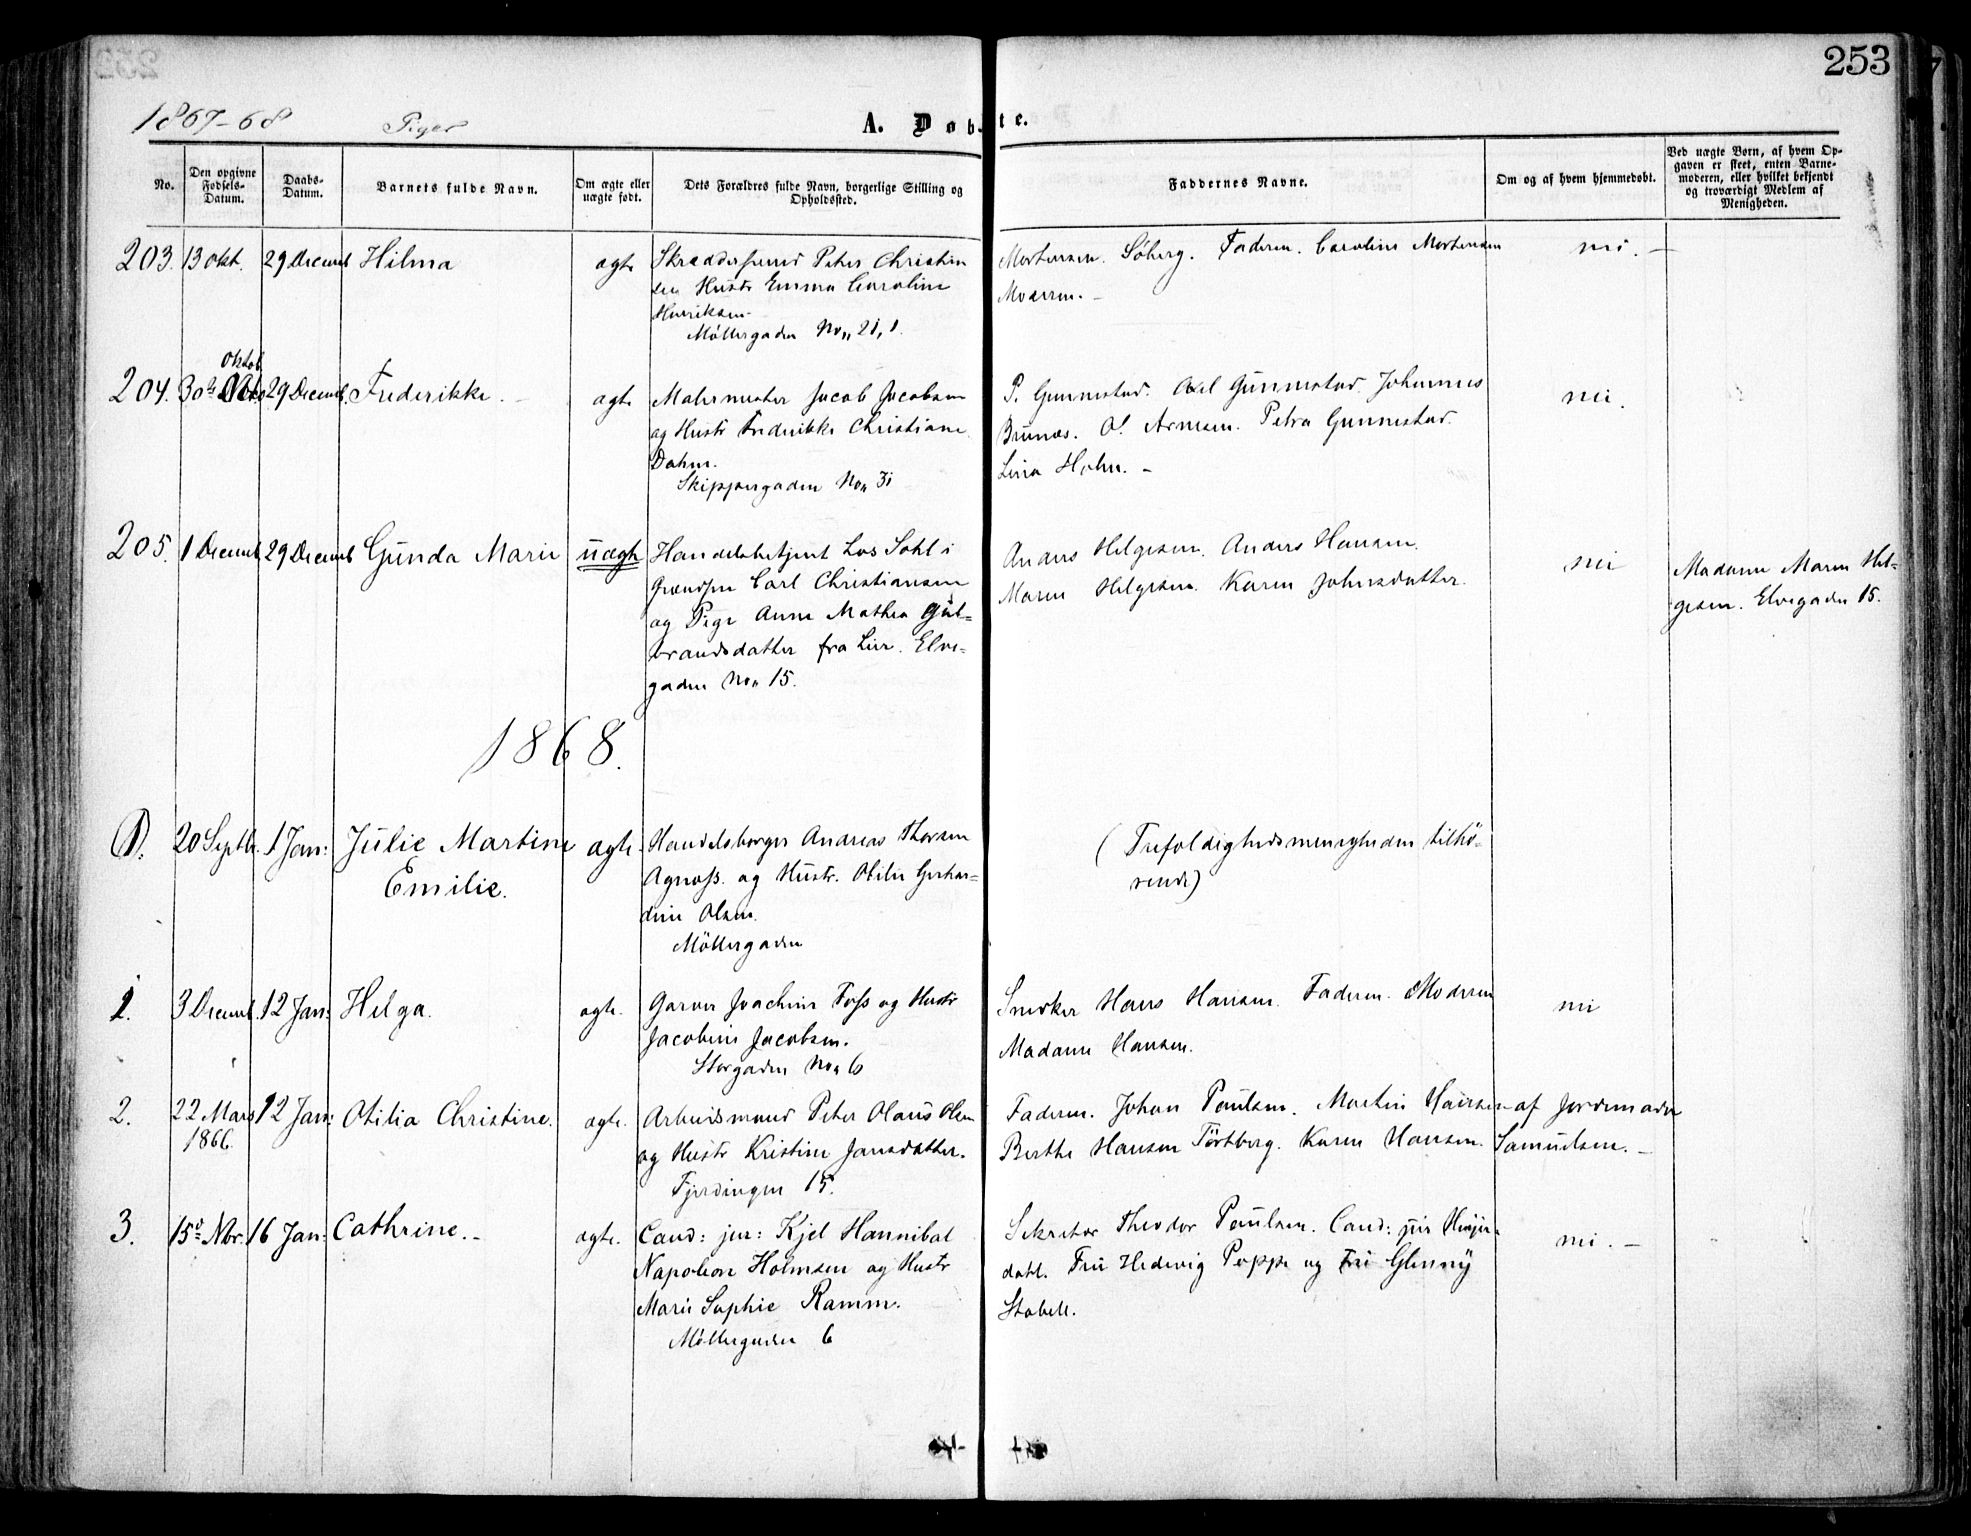 253
1867-68 Piger A. Døbte.
No.
Den opgivne Fødsels-Datum.
Daabs-Datum.
Barnets fulde Navn.
Om ægte eller uægte født.
Dets Forældres fulde Navn, borgerlige Stilling og Opholdssted.
Faddernes Navne.
Om og af hvem hjemmedøbt.
Ved uægte Børn, af hvem Opgaven er skeet, enten Barnemoderen, eller hvilket bekjendt og troværdigt Medlem af Menigheden.
203. 13 Okt. 29 Decemb Hilma ægte Skræddersvend Peter Christen
sen Hustr Emma Caroline
Henriksen
Møllergaden No 21, 1.
Mortensen. Söberg. Faderen. Caroline Mortensen
Moderen. –
nei. –
204. 30te Oktob. 29 Decemb. Frederikke. – ægte Malermester Jacob Jacobsen
og Hustr Frederikke Christiane
Dahm.
Skippergaden No 31
P. Gunnestad. Axel Gunnestad. Johannes
O. Arnesen. Petra Gunnestad.
Lina Holm. –
nei.
205. 1 Decemb. 29 Decemb Gunda Marie uægte Handelsbetjent Los Sohl i
Grændsen Carl Christiansen
og Pige Anne Mathea Gul-
brandsdatter fra Lier. Elve-
gaden No 15.
Anders Helgesen. Anders Hansen.
Maren Helgesen. Karen Johnsdatter.
nei
Madame Maren Hel-
gesen. Elvegaden 15.
1868.
1. 20 Septbr. 1 Jan: Julie Martine
Emilie.
ægte. Handelsborger Andreas Thorsen
Agnæss. og Hustr. Otilie Gerhar-
dine Olsen.
Møllergaden
(Trefoldighedsmenigheden tilhö-
rende)
1. 3 Decemb. 12 Jan: Helga. ægte. Garver Joachim Foss og Hustr
Jacobine Jacobsen.
Storgaden No 6
Snedker Hans Hansen. Faderen. Moderen
Madame Hansen.
nei
2. 22 Mars 1866. 12 Jan: Otilia Christine. ægte. Arbeidsmand Peter Olaus Olsen
og Hustr Kristine Jansdatter.
Fjerdingen 15.
Faderen. Johan Paulsen. Martin Hansen
Berthe Hansen Törtberg. Karen Hansen.
af Jordemoder
Samuelsen. –
3. 15de Nbr. 16 Jan: Cathrine. – ægte. Cand: jur: Kjel Hannibal
Napoleon Holmsen og Hustr
Marie Sophie Ramm.
Møllergaden 6
Sekretær Theodor Paulsen. Cand: jur Heyer-
dahl. Fru Hedevig Poppe og Fru Glenny
Stabell.
nei. –